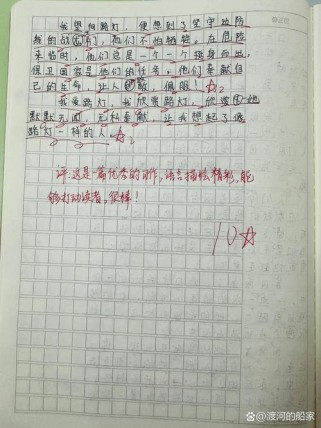 我望向路灯，便想到了坚守边防
线的战士们，他们不怕牺牲。在危险
来临时，他们总是一个一个挺身而出，
保卫国家是他们的任务，他们奉献自
己的生命，让人敬佩。
我爱路灯，我欣赏路灯，欣赏它
默默无闻，无私奉献，让我想起了像
路灯一样的人。
评：这是一篇优秀的习作，语言描绘精彩，能
够打动读者。很棒！
10☆
@渡河的船家